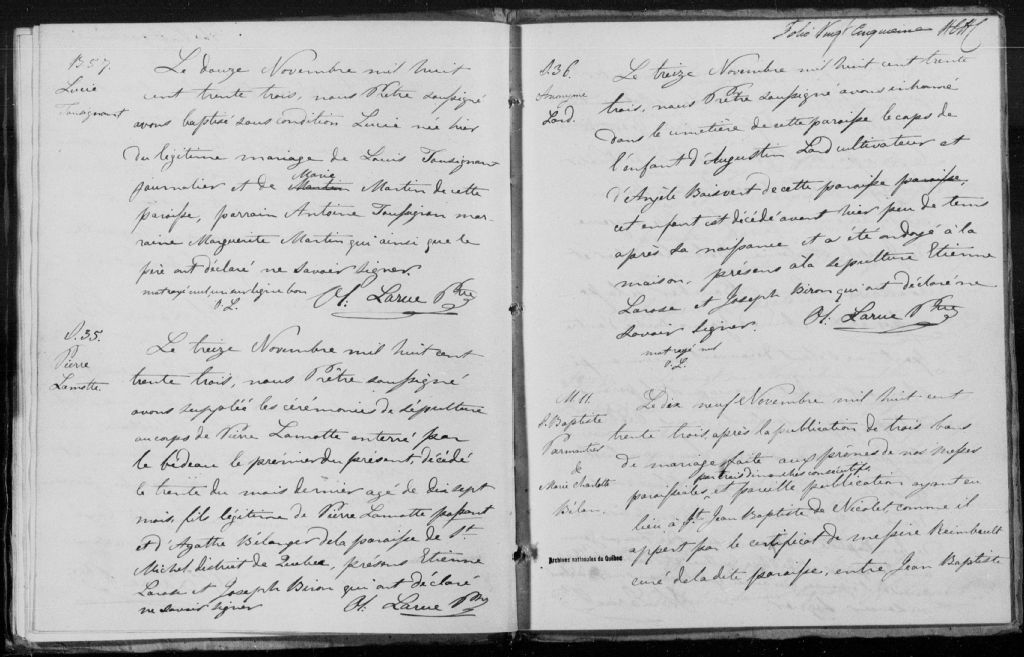 B57.
Lucie
Tousignant
Le douze Novembre mil huit
cent trente trois, nous Prêtre soussigné
avons baptisé sous condition Lucie née hier
du légitime mariage de Louis Tousignant
Marie
journalier et de Martin Martin de cette
paroisse, parrain Antoine Tousignan mar-
raine Marguerite Martin qui ainsi que le
père ont déclaré ne savoir signer.
mot rayé nul, un en ligne bon
O. L.
Ol: Larue Ptre
S.35.
Pierre
Lamotte
Le treize Novembre mil huit cent
trente trois, nous Prêtre soussigné
avons suppléé les cérémonies de sépulture
au corps de Pierre Lamotte enterré par
le bedeau le prémier du présent, décédé
le trente du mois dernier agé de dix sept
mois, fils légitime de Pierre Lamotte passant
et d'Agathe Bélanger de la paroisse de St.
Michel district de Quebec, présens Etienne
Larose et Joseph Biron qui ont déclaré
ne savoir signer
Ol: Larue Ptre
Folio Vingt cinquieme
S.36.
Anonyme
Lord.
Le treize Novembre mil huit cent trente
trois, nous Prêtre soussigné avons inhumé
dans le cimetière de cette paroisse le corps de
l'enfant d'Augustin Lord cultivateur et
d'Angèle Boisvert de cette paroisse paroisse,
cet enfant est décédé avant hier peu de tems
après sa naissance et a été ondoyé à la
maison, présens à la sépulture Etienne
Larose et Joseph Biron qui ont déclaré ne
savoir signer.
Ol. Larue Ptre
mot rayé nul
O. L.
M 11.
J. Baptiste
Parmantier
&
Marie Charlotte
Bélan.
Le dix neuf Novembre mil huit cent
trente trois, après la publication de trois bans
de mariage faite aux prônes de nos messes
par trois dimanches consecutifs
paroissiales, et pareille publication ayant eu
lieu à St. Jean Baptiste de Nicolet comme il
appert par le certificat de messire Reimbault
curé de la dite paroisse, entre Jean Baptiste
Archives nationales du Québec